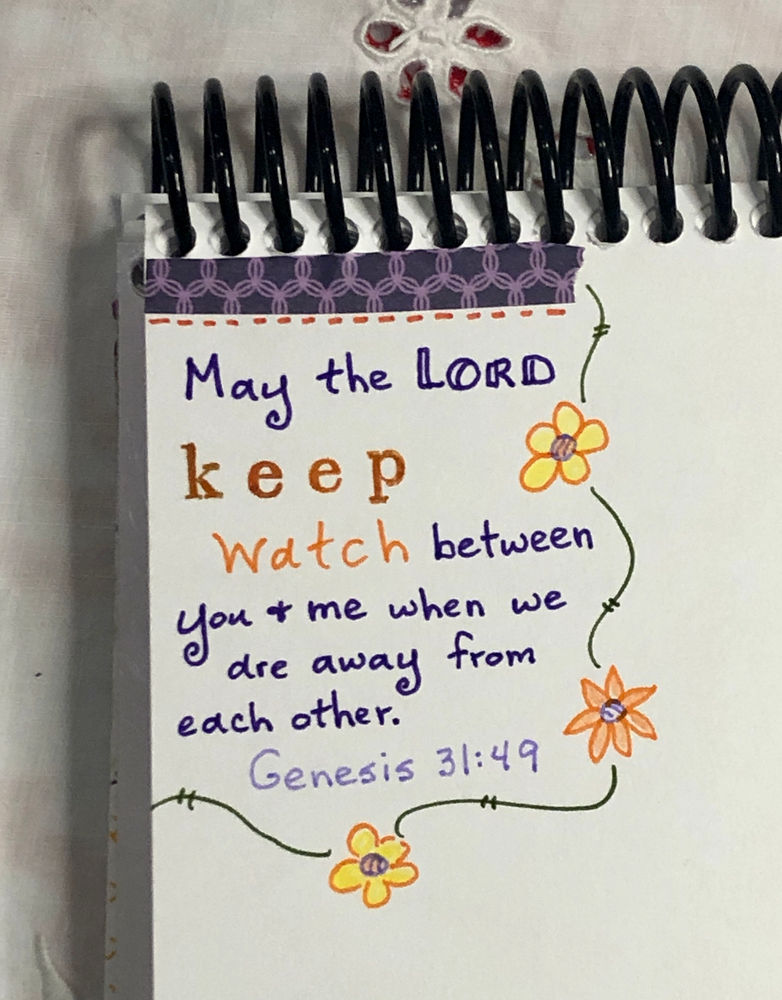 May the LORD
keep
Watch between
you + me when we
are away from
each other.
Genesis 31:49